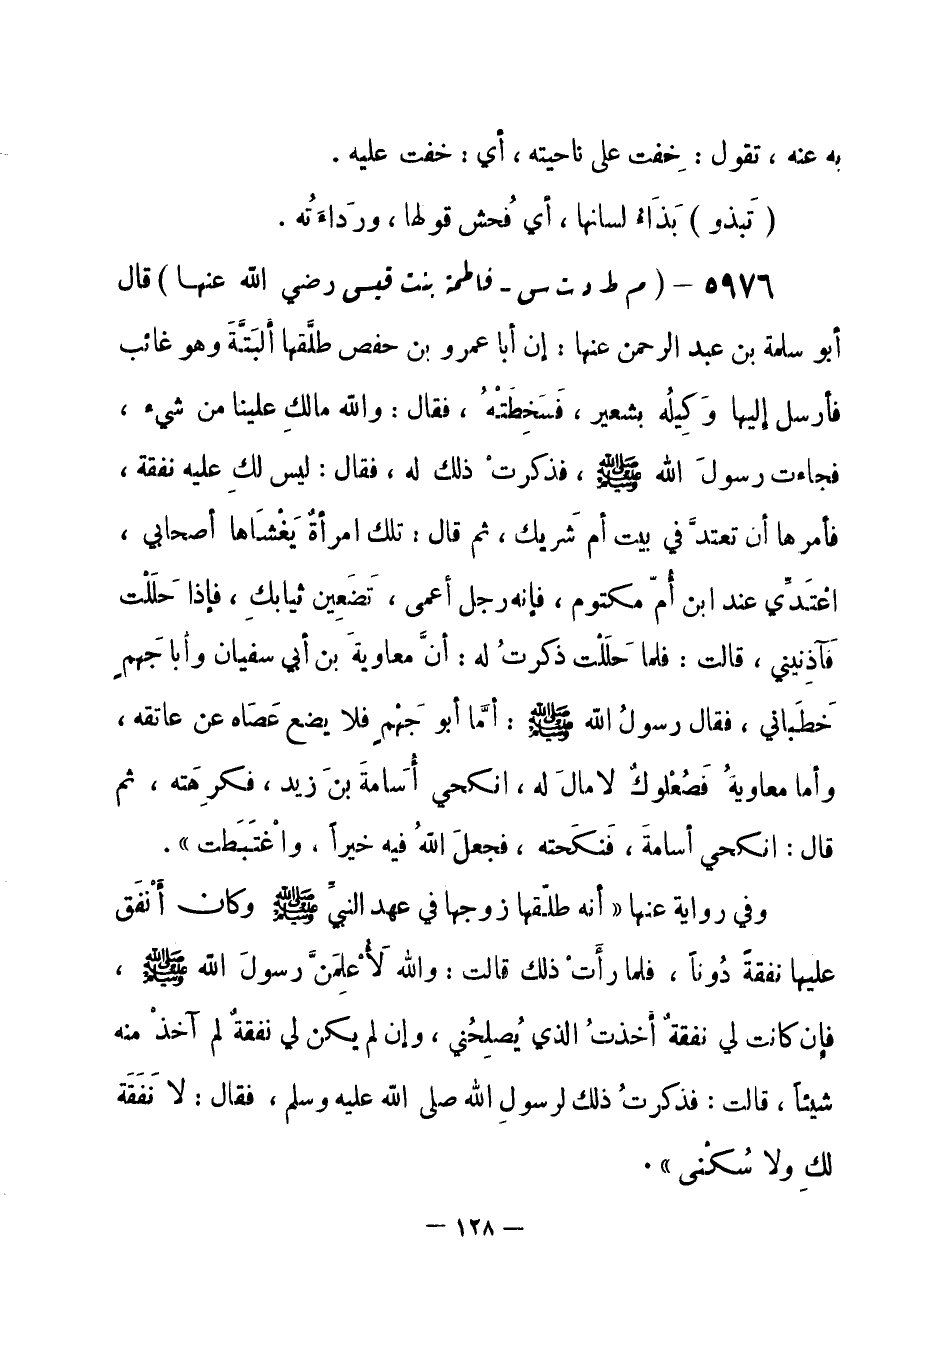 به عنه ، تقول : خِفت على ناحيته ، أي : خفت عليه .
( تَبذو ) بَذَاءُ لسانها ، أي فُحش قولها ، ورَداءَتُه .
٥٩٧٦ – ( م ط د ت س - فاطمة بنت قيس رضي الله عنها ) قال
أبو سلمة بن عبد الرحمن عنها : إن أبا عمرو بن حفص طلَّقها ألبَتَّةَ وهو غائب
فأرسل إليها وَكِيلُه بشعير ، فَسَخِطَتْهُ ، فقال : والله مالكِ علينا من شيء ،
فجاءت رسولَ الله ﷺ ، فذكرتْ ذلك له ، فقال : ليس لكِ عليه نفقة ،
فأمرها أن تعتدَّ في بيت أم شَريك ، ثم قال : تلك امرأةٌ يَغْشَاها أصحابي ،
اعْتَدِّي عند ابن أُمّ مكتوم ، فإنه رجل أعمى ، تَضَعِين ثيابكِ ، فإذا حَلَلْت
فَآذِنيني ، قالت : فلما حَلَلْت ذكرتُ له : أنَّ معاويةَ بن أبي سفيان وأبا جَهمٍ
خَطَباني ، فقال رسولُ الله ﷺ : أمَّا أبو جَهْمٍ فلا يضع عَصَاه عن عاتقه ،
وأما معاويةُ فَصُعْلوكٌ لا مالَ له ، انكحي أُسَامةَ بنَ زيد ، فكرِهَته ، ثم
قال : انكحي أسامةَ ، فَنكَحته ، فجعلَ اللهُ فيه خيراً ، واغْتَبَطت » .
وفي رواية عنها « أنه طلّقها زوجها في عهد النبيِّ ﷺ وكان أَنْفَق
عليها نفقةً دُوناً ، فلما رأَتْ ذلك قالت : والله لَأُعْلِمَنَّ رسولَ الله ﷺ ،
فإن كانت لي نفقةٌ أخذتُ الذي يُصلِحُني ، وإن لم يكن لي نفقةٌ لم آخذْ منه
شيئاً ، قالت : فذكرتُ ذلك لرسولِ الله صلى الله عليه وسلم ، فقال : لا نَفَقَة
لكِ ولا سُكْنى » .
– ١٢٨ –